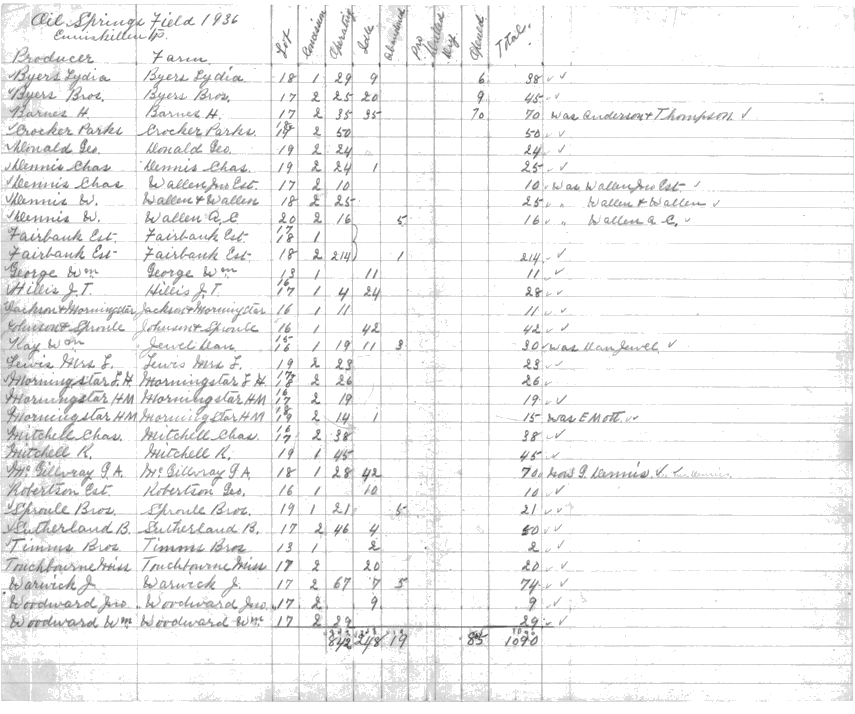 Oil Springs Field 1936
Enniskillen Tp
Producer Farm Lot Concession Operating Idle Abandoned Pro. Drilled Dry Cleaned Total.
Byers Lydia Byers Lydia 18 1 29 9 6 38 ✓✓
Byers Bros. Byers Bros. 17 2 25 20 9 45 ✓✓
Barnes H. Barnes H. 17 2 35 35 70 70 was Anderson & Thompson ✓
Crocker Parks Crocker Parks. 2 50 50 ✓✓
Donald Geo. Donald Geo. 19 2 24 24 ✓
Dennis Chas Dennis Chas. 19 2 24 1 25 ✓✓
Dennis Chas Wallen Jno Est. 17 2 10 10 ✓ was Wallen Jno Est ✓
Dennis W. Wallen & Wallen 18 2 25 25 ✓ " Wallen & Wallen ✓
Dennis W. Wallen A.C 20 2 16 5 16 ✓ " Wallen A-C. ✓
Fairbank Est. Fairbank Est. 17 18 1
Fairbank Est Fairbank Est. 18 2 214 1 214 ✓✓
George Wm George Wm 13 1 11 11 ✓✓
Hillis J.T. Hillis J.T. 16 17 1 4 24 28 ✓✓
Jackson & Morningstar Jackson & Morningstar 16 1 11 11 ✓✓
Johnson & Sproule Johnson & Sproule 16 1 42 42 ✓✓
Kay Wm Jewel Dan 15 16 1 19 11 3 30 ✓ was Dan Jewel ✓
Lewis Mrs L. Lewis Mrs L. 19 2 23 23 ✓✓
Morningstar L H Morningstar L H. 17 18 2 26 26 ✓✓
Morningstar HM Morningstar HM 16 17 2 19 19 ✓✓
Morningstar HM Morningstar HM 18 19 2 14 1 15 was E Mott ✓✓
Mitchell Chas. Mitchell Chas. 16 17 2 38 38 ✓✓
Mitchell R. Mitchell R. 19 1 45 45 ✓✓
McGillvray G.A. McGillvray G.A. 18 1 28 42 70 now G. Dennis ✓
Robertson Est. Robertson Geo. 16 1 10 10 ✓✓
Sproule Bros. Sproule Bros. 19 1 21 5 21 ✓✓
Sutherland B. Sutherland B. 17 2 46 4 50 ✓✓
Timms Bros. Timms Bros 13 1 2 2 ✓✓
Touchbourne Miss Touchbourne Miss 17 2 20 20 ✓✓
Warwick J. Warwick J. 17 2 67 7 5 74 ✓✓
Woodward Jno. Woodward Jno. 17 2 9 9 ✓✓
Woodward Wm Woodward Wm 17 2 29 29 ✓✓
842 248 19 85 1090